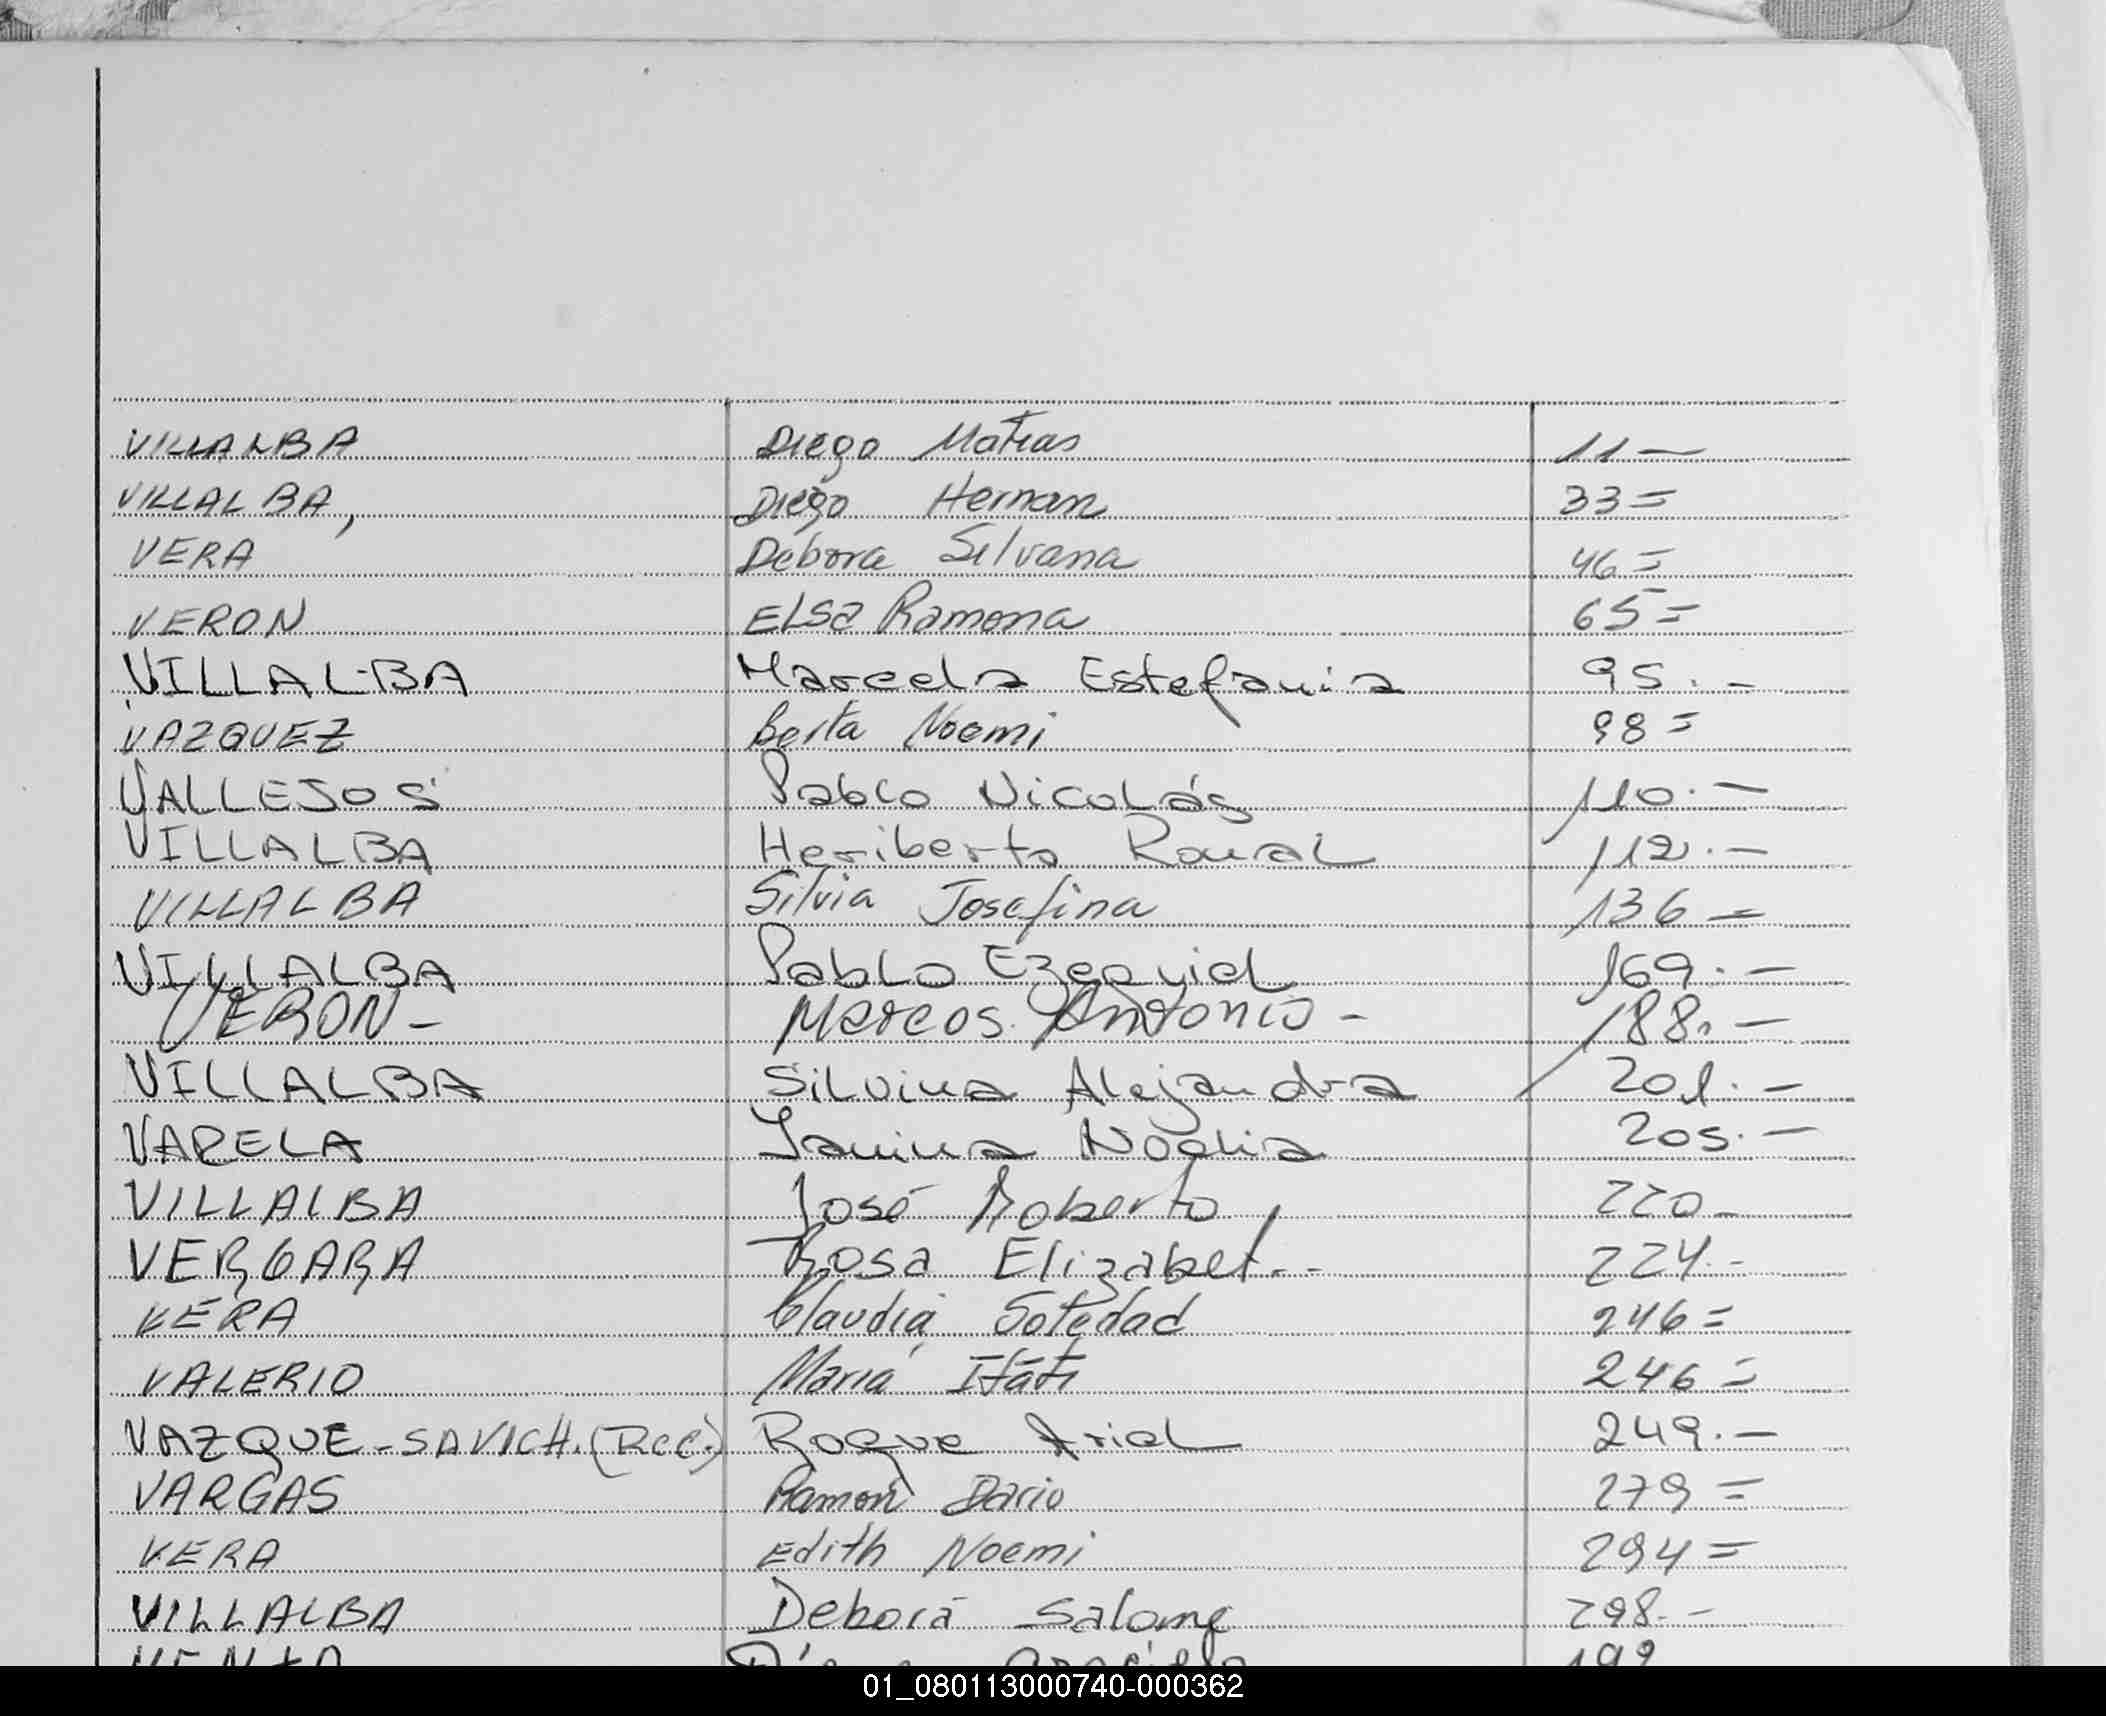 VILLALBA Diego Matias 11 —
VILLALBA, Diego Hernan 33 =
VERA Debora Silvana 46 =
VERON ELSa Ramona 65 =
VILLALBA Marcela Estefania 95. -
VAZQUEZ Berta Noemi 98 =
VALLEJOS Pablo Nicolás 110. —
VILLALBA Heriberto Ronal 112. —
VILLALBA Silvia Josefina 136 =
VILLALBA Pablo Ezequiel 169. —
VERON - Marcos Antonio - 188. —
VILLALBA Silvina Alejandra 201. —
VARELA Yanina Noelia 205. —
VILLALBA José Roberto 220 -
VERGARA Rosa Elizabet. - - 224. -
VERA Claudia Soledad 246 =
VALERIO Maria Itati 246 =
VAZQUE - SAVICH. (Rec.) Roque Ariel 249. —
VARGAS Ramon Dario 279 =
VERA Edith Noemi 294 =
VILLALBA Debora Salome 298. -
199
01_080113000740-000362